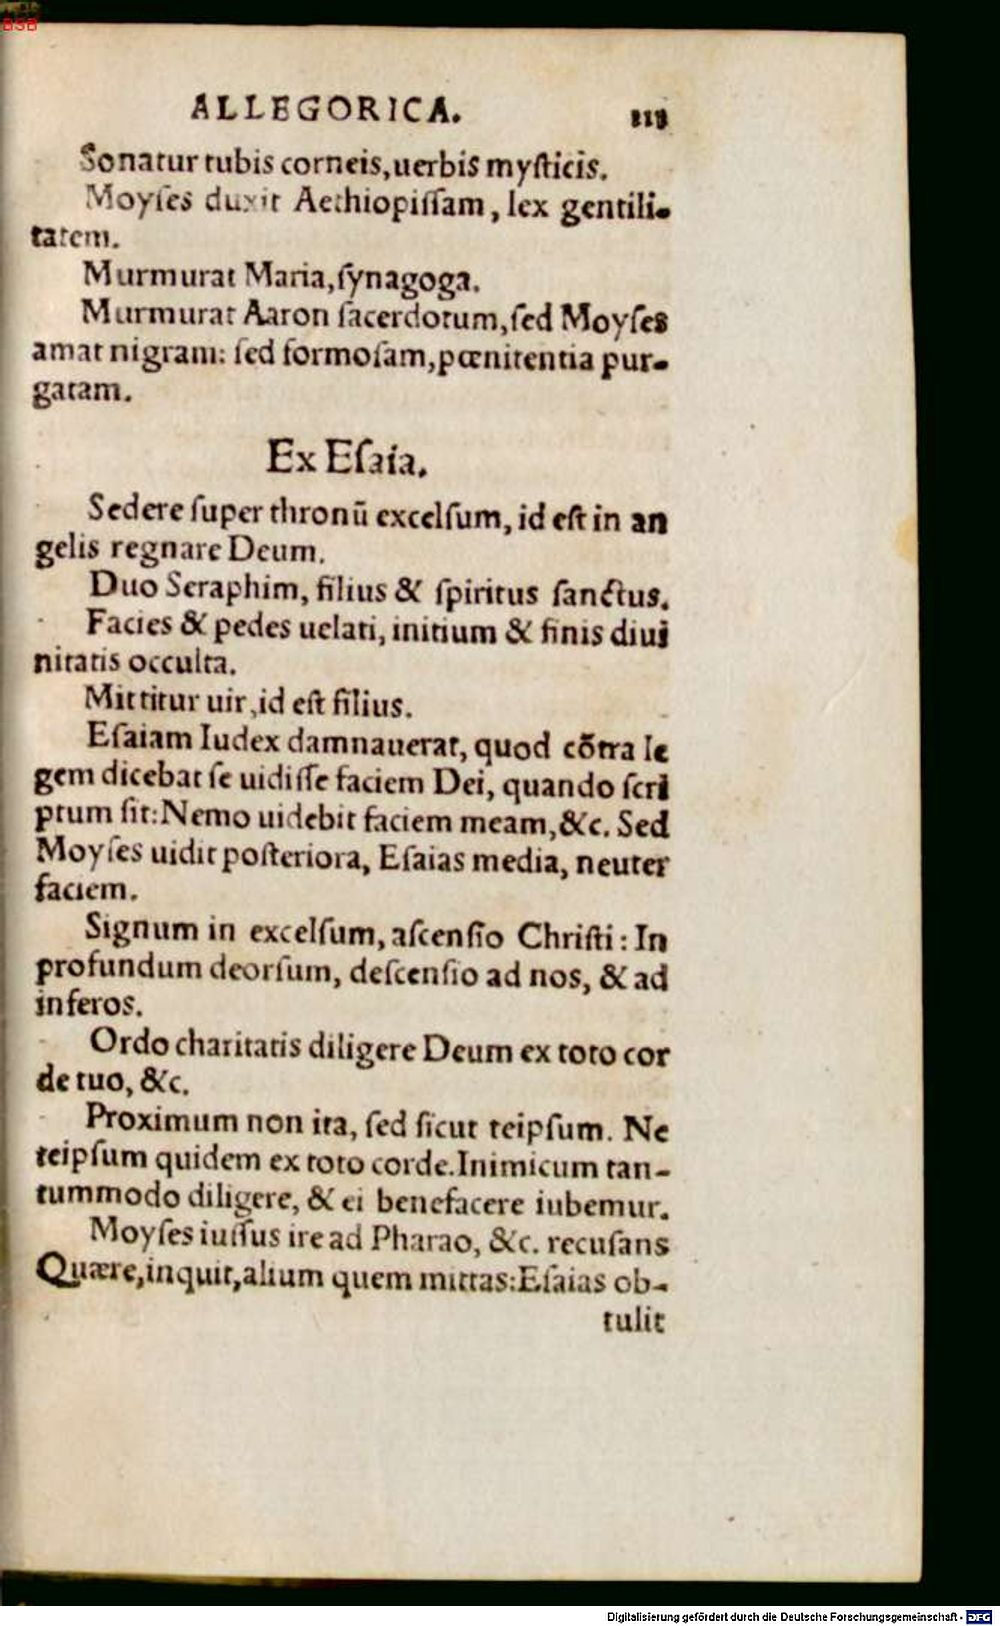 BSB
ALLEGORICA. 111
Sonatur tubis corneis,uerbis myſticis.
Moyſes duxit Aethiopiſſam, lex gentili-
tatem.
Murmurat Maria,ſynagoga.
Murmurat Aaron ſacerdotum,ſed Moyſes
amat nigram: ſed formoſam,pœnitentia pur-
gatam.
Ex Eſaia.
Sedere ſuper thronū excelſum, id eſt in an
gelis regnare Deum.
Duo Seraphim, filius & ſpiritus ſanctus.
Facies & pedes uelati, initium & finis diui
nitatis occulta.
Mittitur uir,id eſt filius.
Eſaiam Iudex damnauerat, quod cõtra le
gem dicebat ſe uidiſſe faciem Dei, quando ſcri
ptum ſit:Nemo uidebit faciem meam,&c. Sed
Moyſes uidit poſteriora, Eſaias media, neuter
faciem.
Signum in excelſum, aſcenſio Chriſti: In
profundum deorſum, deſcenſio ad nos, & ad
inferos.
Ordo charitatis diligere Deum ex toto cor
de tuo, &c.
Proximum non ita, ſed ſicut teipſum. Ne
teipſum quidem ex toto corde.Inimicum tan-
tummodo diligere, & ei benefacere iubemur.
Moyſes iuſſus ire ad Pharao, &c. recuſans
Quære,inquit,alium quem mittas:Eſaias ob-
tulit
Digitalisierung gefördert durch die Deutsche Forschungsgemeinschaft - DFG